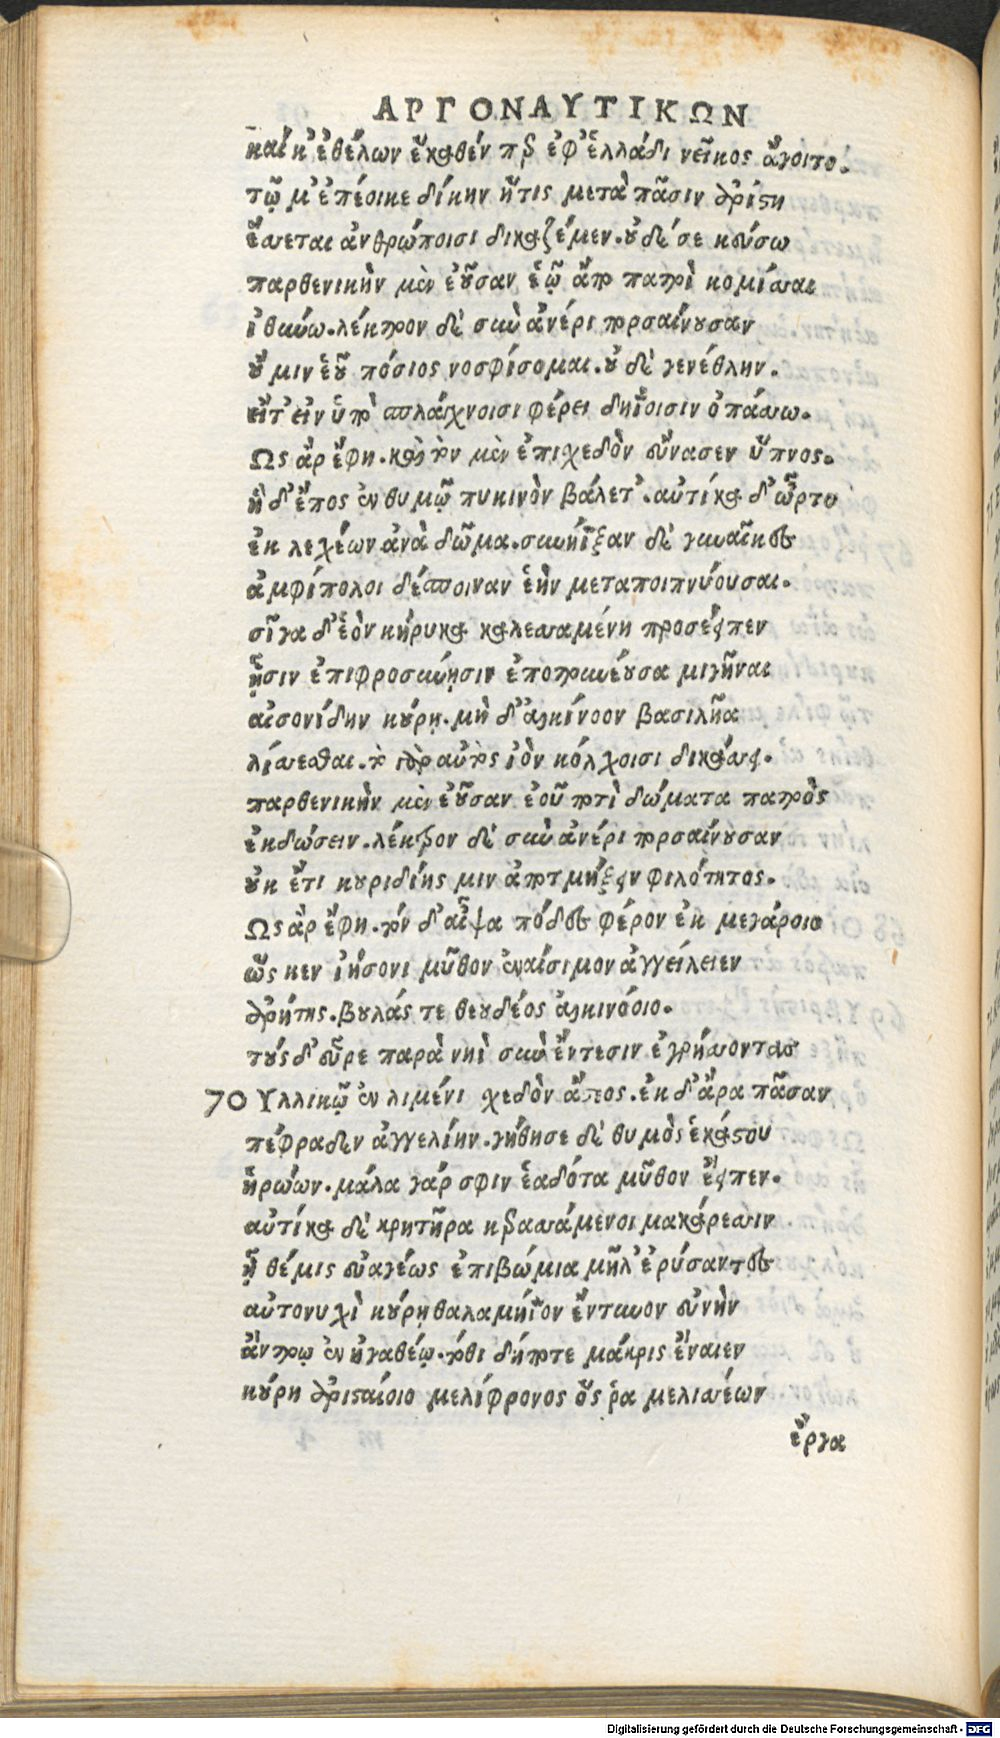 ΑΡΓΟΝΑΥΤΙΚΩΝ
καί κ' ἐθέλων ἕκαθέν περ ἐφ' ἑλλάδι νεῖκος ἄγοιτο.
τῷ μ' ἐπέοικε δίκην ἥτις μετὰ πᾶσιν ἀρίστη
ἔσσεται ἀνθρώποισι δικαζέμεν. οὐδέ σε κεύσω
παρθενικὴν μὲν ἐοῦσαν ἑῷ ἀπὸ πατρὶ κομίσσαι
ἰθύνω. λέκτρον δὲ σὺν ἀνέρι πορσαίνουσαν
οὔ μιν ἑοῦ πόσιος νοσφίσομαι. οὐ δὲ γενέθλην.
εἴτ' εἰν ὑπὸ σπλάγχνοισι φέρει δηΐοισιν ὀπάσσω.
Ως ἂρ ἔφη. καὶ τὸν μὲν ἐπισχεδὸν εὔνασεν ὕπνος.
ἣ δ' ἔπος ἐν θυμῷ πυκινὸν βάλετ'. αὐτίκα δ' ὦρτο
ἐκ λεχέων ἀνὰ δῶμα. συνήϊξαν δὲ γυναῖκες
ἀμφίπολοι δέσποιναν ἑὴν μεταποιπνύουσαι.
σῖγα δ' ἑὸν κήρυκα καλεσσαμένη προσέειπεν
ᾗσιν ἐπιφροσύνησιν ἐποτρυνέουσα μιγῆναι
αἰσονίδην κούρῃ. μὴ δ' ἀλκίνοον βασιλῆα
λίσσεσθαι. τὸ γὰρ αὐτὸς ἰὸν κόλχοισι δικάσσει.
παρθενικὴν μὲν ἐοῦσαν ἑοῦ ποτὶ δώματα πατρὸς
ἐκδώσειν. λέκτρον δὲ σὺν ἀνέρι πορσαίνουσαν
οὐκ ἔτι κουριδίης μιν ἀποτμήξειν φιλότητος.
Ως ἂρ ἔφη. τὸν δ' αἶψα πόδες φέρον ἐκ μεγάροιο
ὥς κεν ἰήσονι μῦθον ἐναίσιμον ἀγγείλειεν
ἀρήτης. βουλάς τε θεουδέος ἀλκινόοιο.
τοὺς δ' εὗρε παρὰ νηῒ σὺν ἔντεσιν ἐγρήσσοντας
70 Υλλικῷ ἐν λιμένι σχεδὸν ἄστεος. ἐκ δ' ἄρα πᾶσαν
πέφραδεν ἀγγελίην. γήθησε δὲ θυμὸς ἑκάστου
ἡρώων. μάλα γάρ σφιν ἑαδότα μῦθον ἔειπεν.
αὐτίκα δὲ κρητῆρα κερασσάμενοι μακάρεσσιν
ᾗ θέμις εὐαγέως ἐπιβώμια μῆλ' ἐρύσαντες
αὐτονυχὶ κούρῃ θαλαμήϊον ἔντυον εὐνὴν
ἄντρῳ ἐν ἠγαθέῳ. τόθι δήποτε μάκρις ἔναιεν
κούρη ἀρισταίοιο μελίφρονος ὅς ῥα μελισσέων
ἔργα
Digitalisierung gefördert durch die Deutsche Forschungsgemeinschaft - DFG